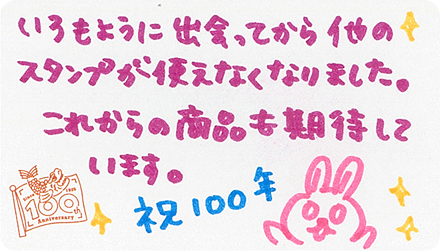 いろもように出会ってから他の
スタンプが使えなくなりました。
これからの商品も期待して
います。
祝100年
100th
Anniversary